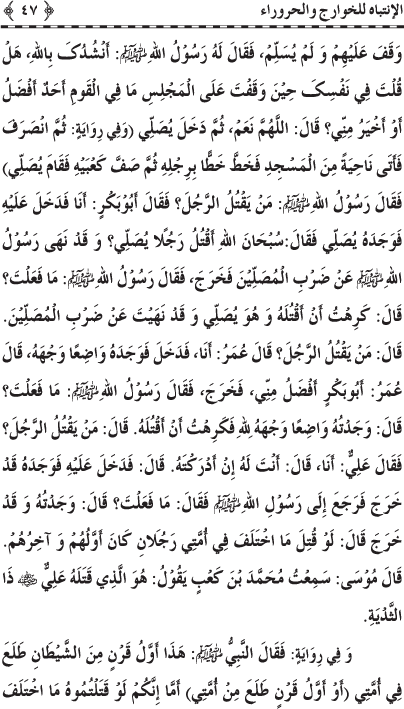 الإنتباه للخوارج والحروراء ﴿ ٤٧ ﴾
وَقَفَ عَلَيْهِمْ وَ لَمْ يُسَلِّمْ، فَقَالَ لَهُ رَسُوْلُ اللهِ ﷺ: أَنْشُدُکَ بِاللهِ، هَلْ
قُلْتَ فِي نَفْسِکَ حِيْنَ وَقَفْتَ عَلَى الْمَجْلِسِ مَا فِي الْقَوْمِ أَحَدٌ أَفْضَلُ
أَوْ أَخْيَرُ مِنِّي؟ قَالَ: اللَّهُمَّ نَعَمْ، ثُمَّ دَخَلَ يُصَلِّي (وَفِي رِوَايَةٍ: ثُمَّ انْصَرَفَ
فَأَتَى نَاحِيَةً مِنَ الْمَسْجِدِ فَخَطَّ خَطًّا بِرِجْلِهِ ثُمَّ صَفَّ کَعْبَيْهِ فَقَامَ يُصَلِّي)
فَقَالَ رَسُوْلُ اللهِ ﷺ: مَنْ يَقْتُلُ الرَّجُلَ؟ فَقَالَ أَبُوْبَکْرٍ: أَنَا فَدَخَلَ عَلَيْهِ
فَوَجَدَهُ يُصَلِّي فَقَالَ:سُبْحَانَ اللهِ أَقْتُلُ رَجُلًا يُصَلِّي؟ وَ قَدْ نَهَى رَسُوْلُ
اللهِ ﷺ عَنْ ضَرْبِ الْمُصَلِّيْنَ فَخَرَجَ، فَقَالَ رَسُوْلُ اللهِ ﷺ: مَا فَعَلْتَ؟
قَالَ: کَرِهْتُ أَنْ أَقْتُلَهُ وَ هُوَ يُصَلِّي وَ قَدْ نَهَيْتَ عَنْ ضَرْبِ الْمُصَلِّيْنَ.
قَالَ: مَنْ يَقْتُلُ الرَّجُلَ؟ قَالَ عُمَرُ: أَنَا، فَدَخَلَ فَوَجَدَهُ وَاضِعًا وَجْهَهُ، قَالَ
عُمَرُ: أَبُوْبَکْرٍ أَفْضَلُ مِنِّي، فَخَرَجَ، فَقَالَ رَسُوْلُ اللهِ ﷺ: مَا فَعَلْتَ؟
قَالَ: وَجَدْتُهُ وَاضِعًا وَجْهَهُ لِلّٰهِ فَکَرِهْتُ أَنْ أَقْتُلَهُ. قَالَ: مَنْ يَقْتُلُ الرَّجُلَ؟
فَقَالَ عَلِيٌّ: أَنَا، قَالَ: أَنْتَ لَهُ إِنْ أَدْرَکْتَهُ. قَالَ: فَدَخَلَ عَلَيْهِ فَوَجَدَهُ قَدْ
خَرَجَ فَرَجَعَ إِلَى رَسُوْلِ اللهِ ﷺ فَقَالَ: مَا فَعَلْتَ؟ قَالَ: وَجَدْتُهُ وَ قَدْ
خَرَجَ قَالَ: لَوْ قُتِلَ مَا اخْتَلَفَ فِي أُمَّتِي رَجُلَانِ کَانَ أَوَّلُهُمْ وَ آخِرُهُمْ.
قَالَ مُوْسَى: سَمِعْتُ مُحَمَّدَ بْنَ کَعْبٍ يَقُوْلُ: هُوَ الَّذِي قَتَلَهُ عَلِيٌّ ؓ ذَا
الثَّدْيَةِ.
وَ فِي رِوَايَةٍ: فَقَالَ النَّبِيُّ ﷺ: هَذَا أَوَّلُ قَرْنٍ مِنَ الشَّيْطَانِ طَلَعَ
فِي أُمَّتِي (أَوْ أَوَّلُ قَرْنٍ طَلَعَ مِنْ أُمَّتِي) أَمَّا إِنَّکُمْ لَوْ قَتَلْتُمُوْهُ مَا اخْتَلَفَ